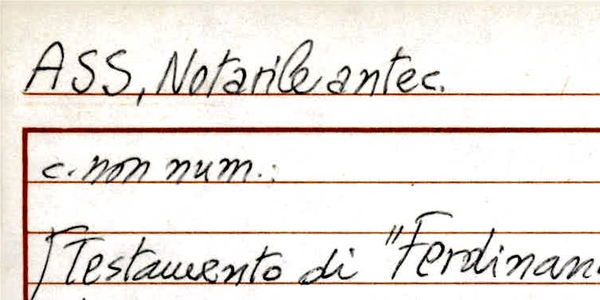 ASS, Notarile antec.
c. non num.:
Testamento di "Ferdinan